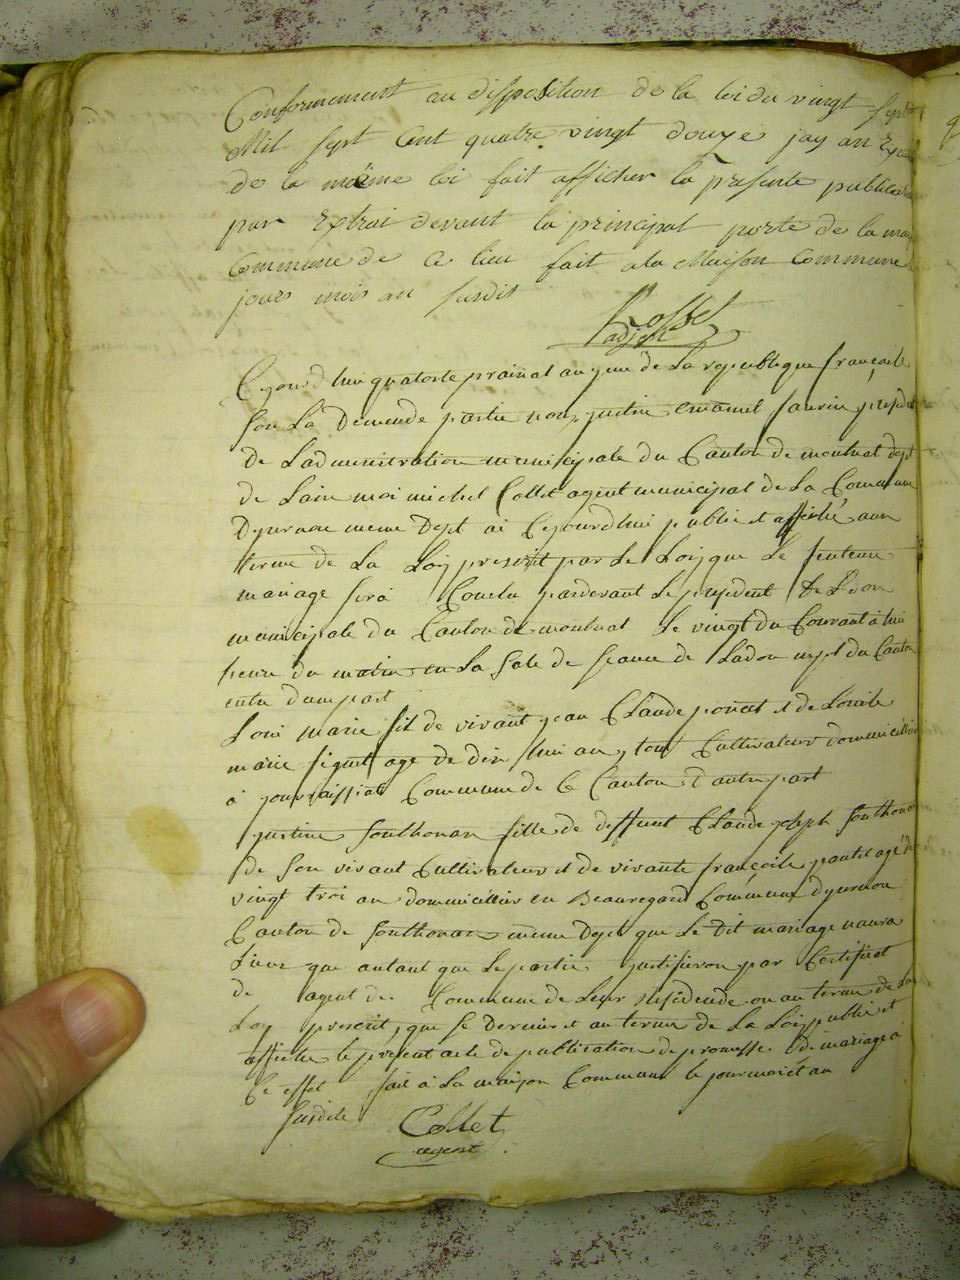 Conformement au disposition de la loi du vingt sept
Mil sept Cent quatre vingt douze jay an
de la maëme loi fait afficher la presente publica
par Extrai devant la principal porte de la mai
Commune de Ce lieu fait a la Maison Commune
jours mois an susdit
Rosset
adjoint
Cejourd'hui quatorse prairial an de La republique françaile
Sur La Demende partie emanuel president
de Ladminitration municipale du Canton de montuel dept
de Lain moi michel Collet agent municipal de La Commune
meme Dept ai Cejourd'hui publié et affiché aux
terme de La Loy prescrit par Le Loy que Le
mariage sera Conclu pardevant Le president De Ladon
municipale du Canton de montuel Le vingt du Courant à hui
heure du matin en La Sale de seance de Ladon mupl du Canton
entre dune part
Loui marie fil de vivant jean Claude poncet et de
marie age de dix hui an tout Cultivateurs dommicillié
à Commune de Ce Canton d'autre part
justine Southonax fille de deffunt Claude joseph Southonax
de Son vivant Cultivateur et de vivante françoise age de
vingt troi an dommicilliés en Beauregard Commune
Canton de Southonax meme Dept que Le dit mariage naura
Lieux que autant que Le partie justifiron par Certificat
de agent de Commune de Leur Residende ou au terme de La
Loy prescrit, que Le Dernier et au terme de La Loi publié et
affiché le présent acte de publication de promesse de mariage a
Ce effet fait à La maison Commune le jour moi et an
susdite
Collet
agent